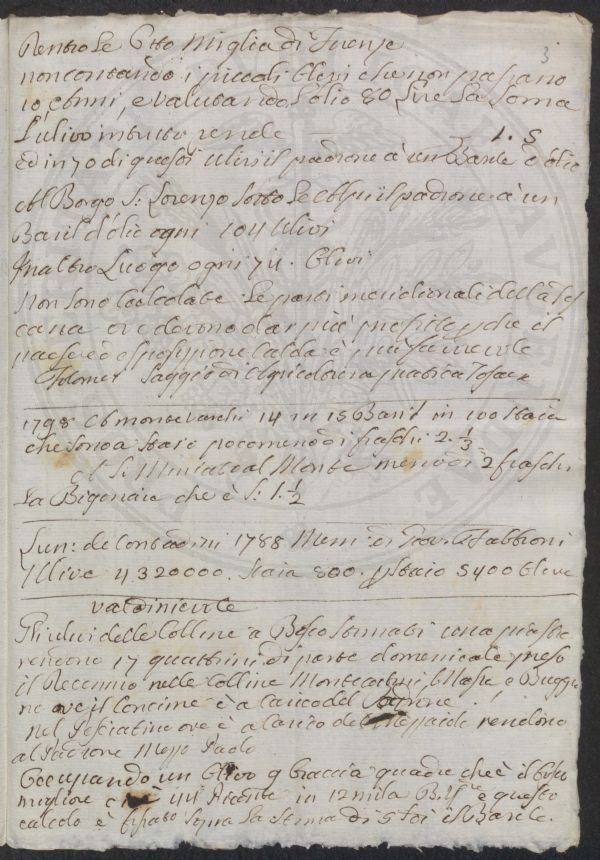 3
Dentro Le Otto Miglia di Firenze
non contando i piccoli Olivi che non passano
10 Anni, e valutando L'olio 80 Lire La Soma
L'ulivo in tutto rende 1. 8
ed in 70 di questi Ulivi il padrone à un Barile d'olio
Al Borgo S: Lorenzo sotto Le Alpi il padrone à un
Baril d'olio ogni 104 Ulivi
In altro Luogo ogni 74. Olivi
Non sono Calcolate Le parti meridionali della Tos
cana ove devono dar più profitto, che il
paese ed esposizione calda è più favorevole
Saggio di Agricoltura pratica Tosca
1798 A Montevarchi 14 in 15 Baril in 100 Staia
che sono a Staio poco meno di fiaschi 2. 1/3
A S. Miniato al Monte meno di 2 fiaschi
La Bigoncia che è S: 1. 1/2
Lun: de Contadini 1788 Mem: di Giov. Fabbroni
Ulive 4320000. Staia 800. p Staio 5400 Ulive
Valdinievole
Gli ulivi delle Colline a Bosco stimati una piastra
rendono 17 quattrini di parte domenicale preso
il Decennio nelle Colline Montecatini, Massa e Buggia
no ove il Concime è a carico del Padrone
nel Pesciatino ove è a carico del rendono
al Padrone Mezzo Paolo
Occupando un Olivo 9 braccia quadre che è il
migliore 44 in 12 mila B. e questo
calcolo è sopra La Stima di Barile.